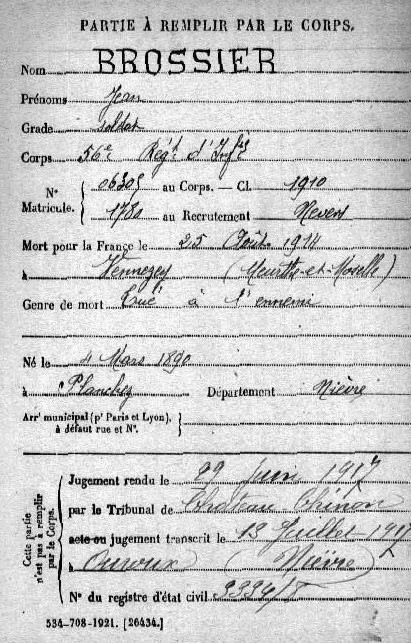 PARTIE À REMPLIR PAR LE CORPS.
Nom BROSSIER
Prénoms Jean
Grade soldat
Corps 56e Régt d'Infie
N° Matricule. 06305 au Corps. — Cl. 1910
1780 au Recrutement Nevers
Mort pour la France le 25 Août 1914
à Vennezey (Meurthe-et-Moselle)
Genre de mort Tué à l'ennemi
Né le 4 Mars 1890
à Planchez Département Nièvre
Arrt municipal (pr Paris et Lyon),
à défaut rue et N°.
Cette partie n'est pas à remplir par le Corps.
Jugement rendu le 29 Juin 1917
par le Tribunal de Château Chinon
acte ou jugement transcrit le 13 Juillet 1917
à Ouroux (Nièvre)
N° du registre d'état civil
534-708-1921. [26434.]